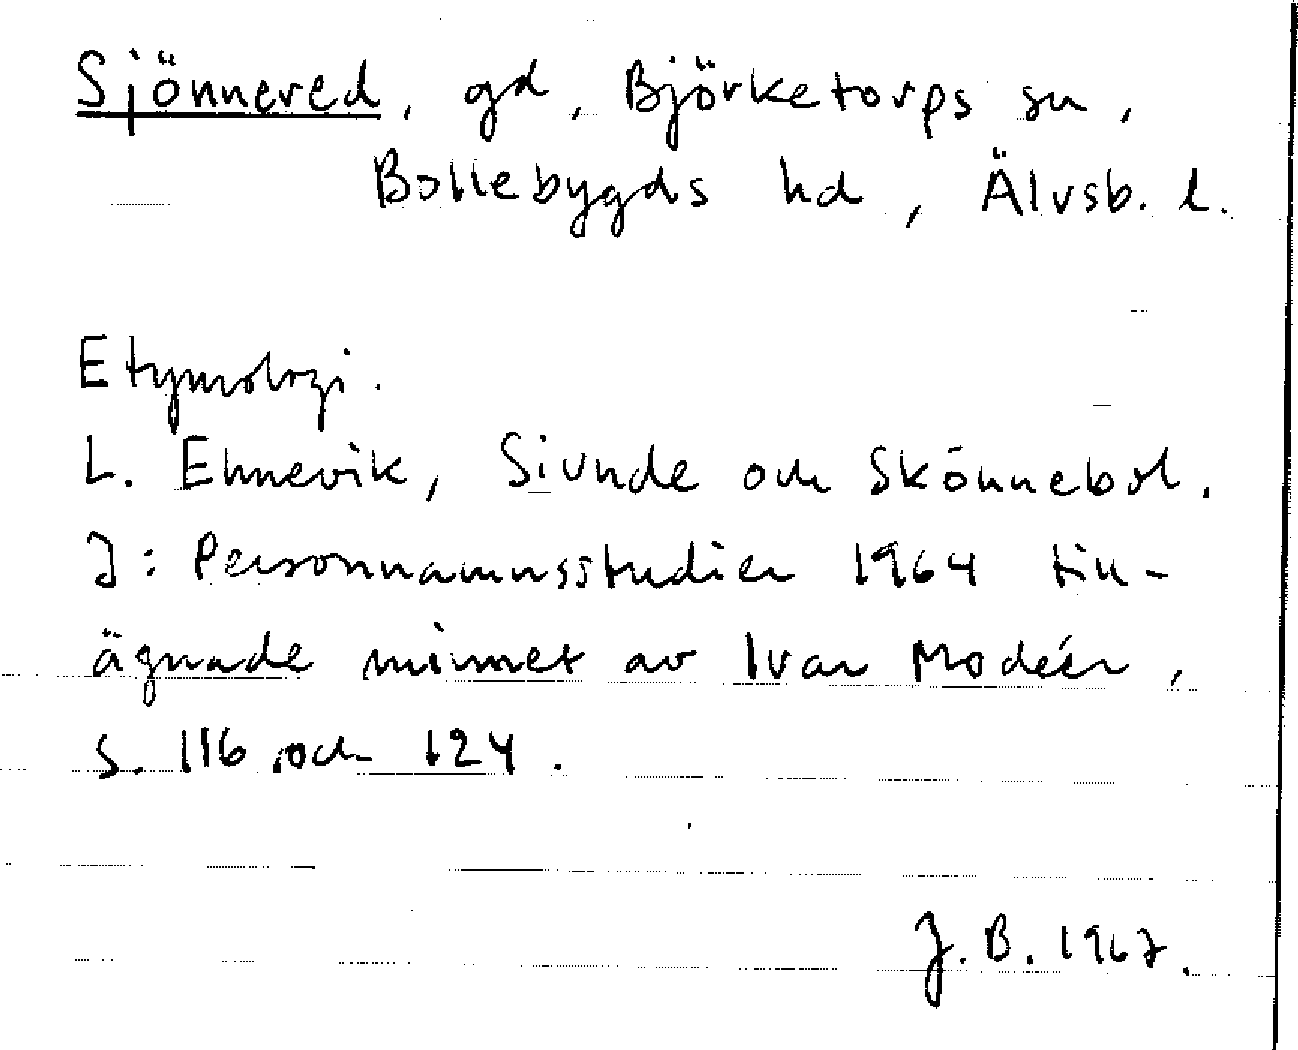 Sjönnered, gd, Björketorps sn,
Bollebygds hd, Älvsb. l.
Etymologi.
L. Ehnevik, Siunde och Skönnebol.
I: Personnamnsstudier 1964 till-
ägnade minnet av Ivar Modéer,
s. 116 och 124.
J. B. 1967.